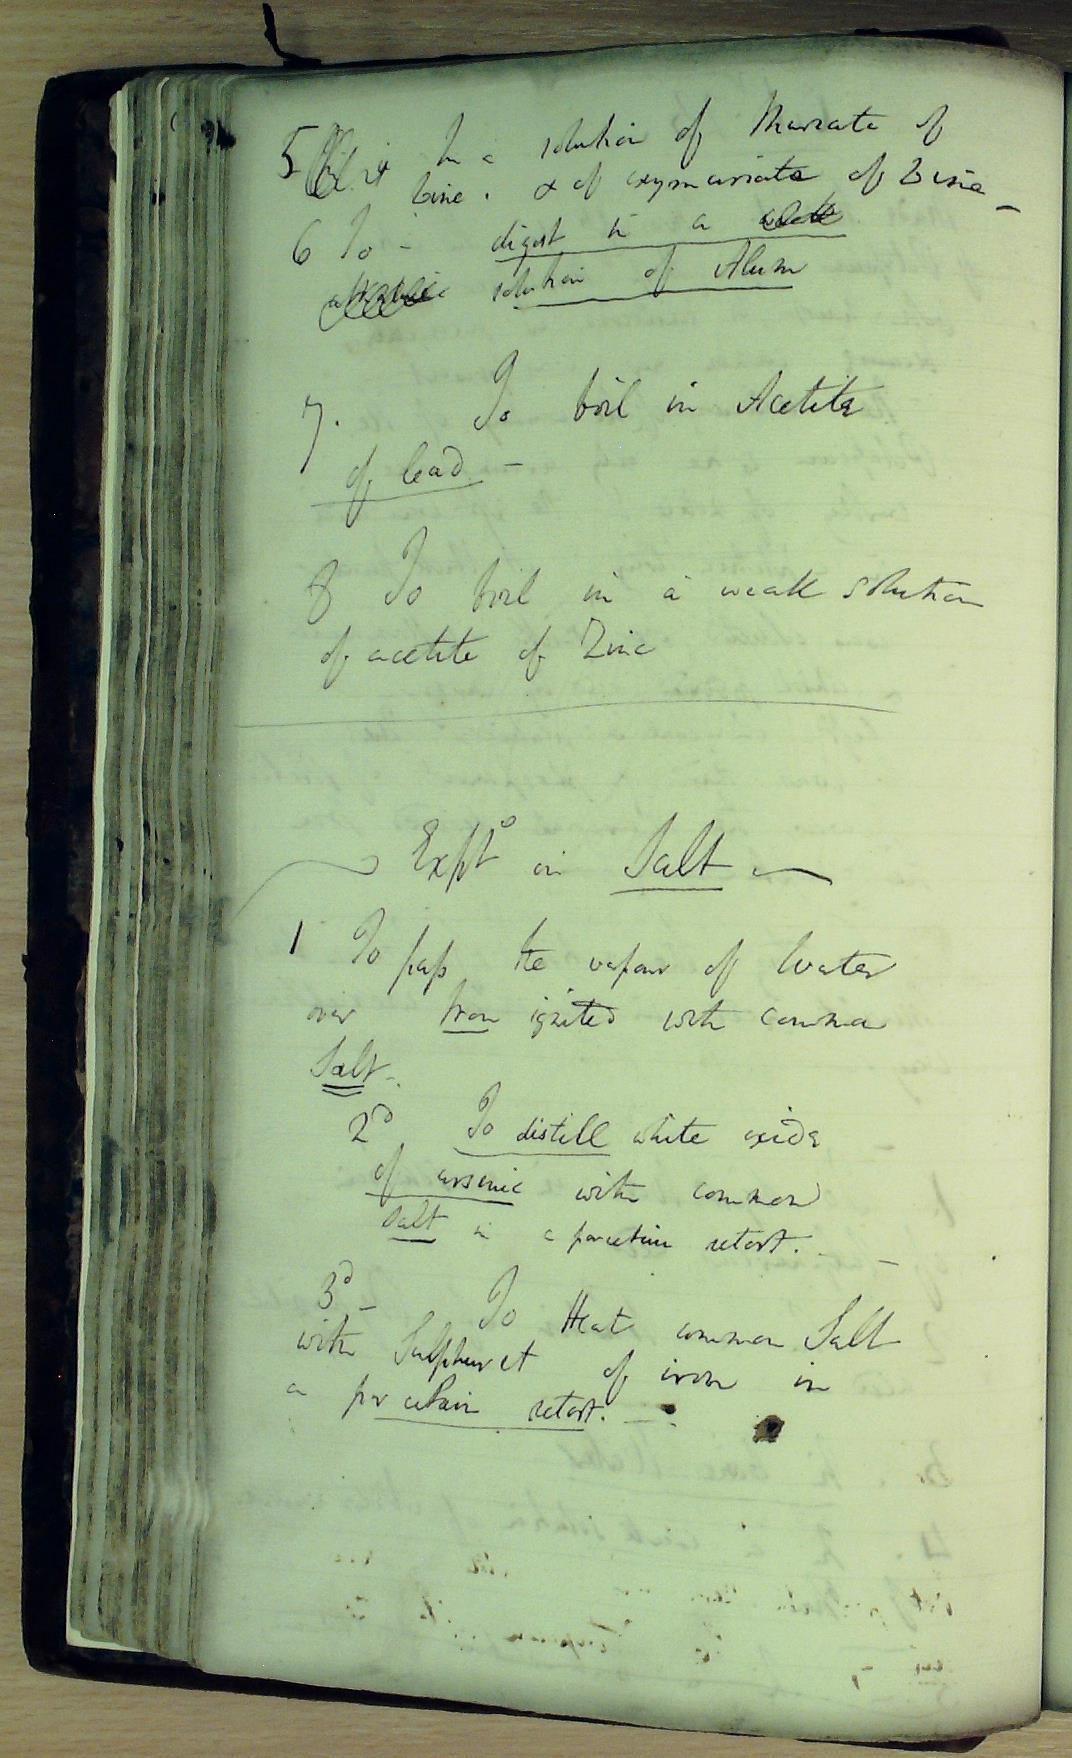 5 In a solution of Muriate of
Lime. & of oxymuriate of Lime –
6 To – digest in a
solution of Alum
7. To boil in Acetite
of lead –
8 To boil in a weak solution
of acetite of Zinc
Expts in Salt
1 To pass the vapour of Water
over Iron ignited with common
Salt.
2d. To distill white oxide
of arsenic with common
salt in a porcelain retort. –
3d – To Heat common Salt
with Sulphuret of iron in
a porcelain retort. –